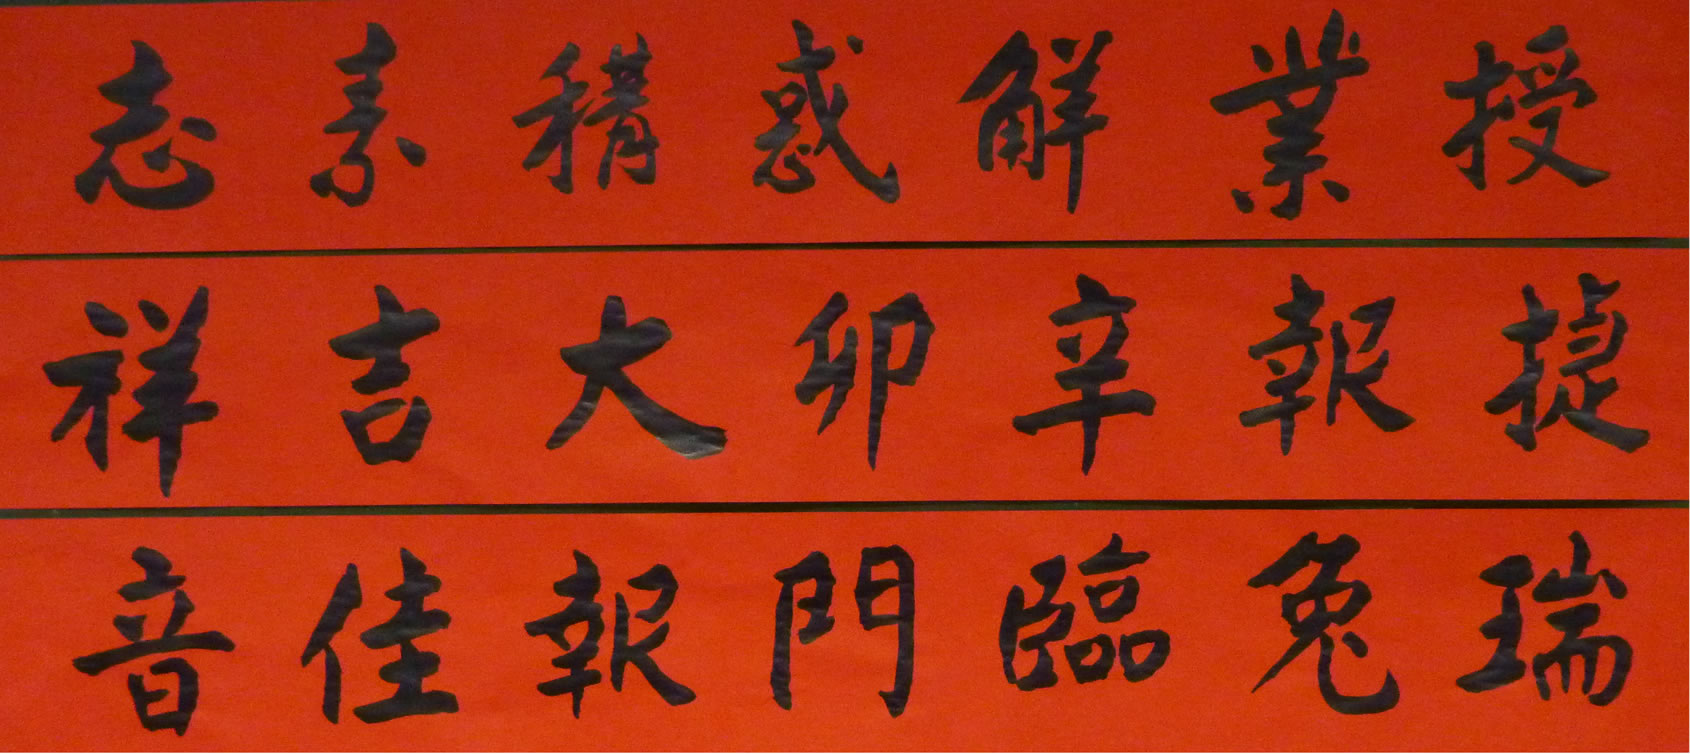 授業解惑稱素志
捷報辛卯大吉祥
瑞兔臨門報佳音